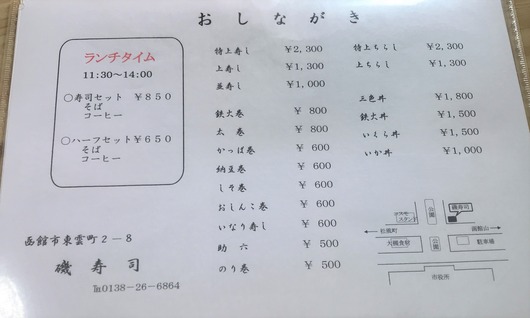 おしながき
ランチタイム
11:30〜14:00
○寿司セット ￥850
そば
コーヒー
○ハーフセット ￥650
そば
コーヒー
函館市東雲町2－8
磯寿司
℡0138-26-6864
特上寿し ￥2,300
上寿し ￥1,300
並寿し ￥1,000
鉄火巻 ￥ 800
太巻 ￥ 800
かっぱ巻 ￥ 600
納豆巻 ￥ 600
しそ巻 ￥ 600
おしんこ巻 ￥ 600
いなり寿し ￥ 600
助六 ￥ 500
のり巻 ￥ 500
特上ちらし ￥2,300
上ちらし ￥1,300
三色丼 ￥1,800
鉄火丼 ￥1,500
いくら丼 ￥1,500
いか丼 ￥1,000
公園
磯寿司
スタンド
松風町
函館山
公園
駐車場
市役所